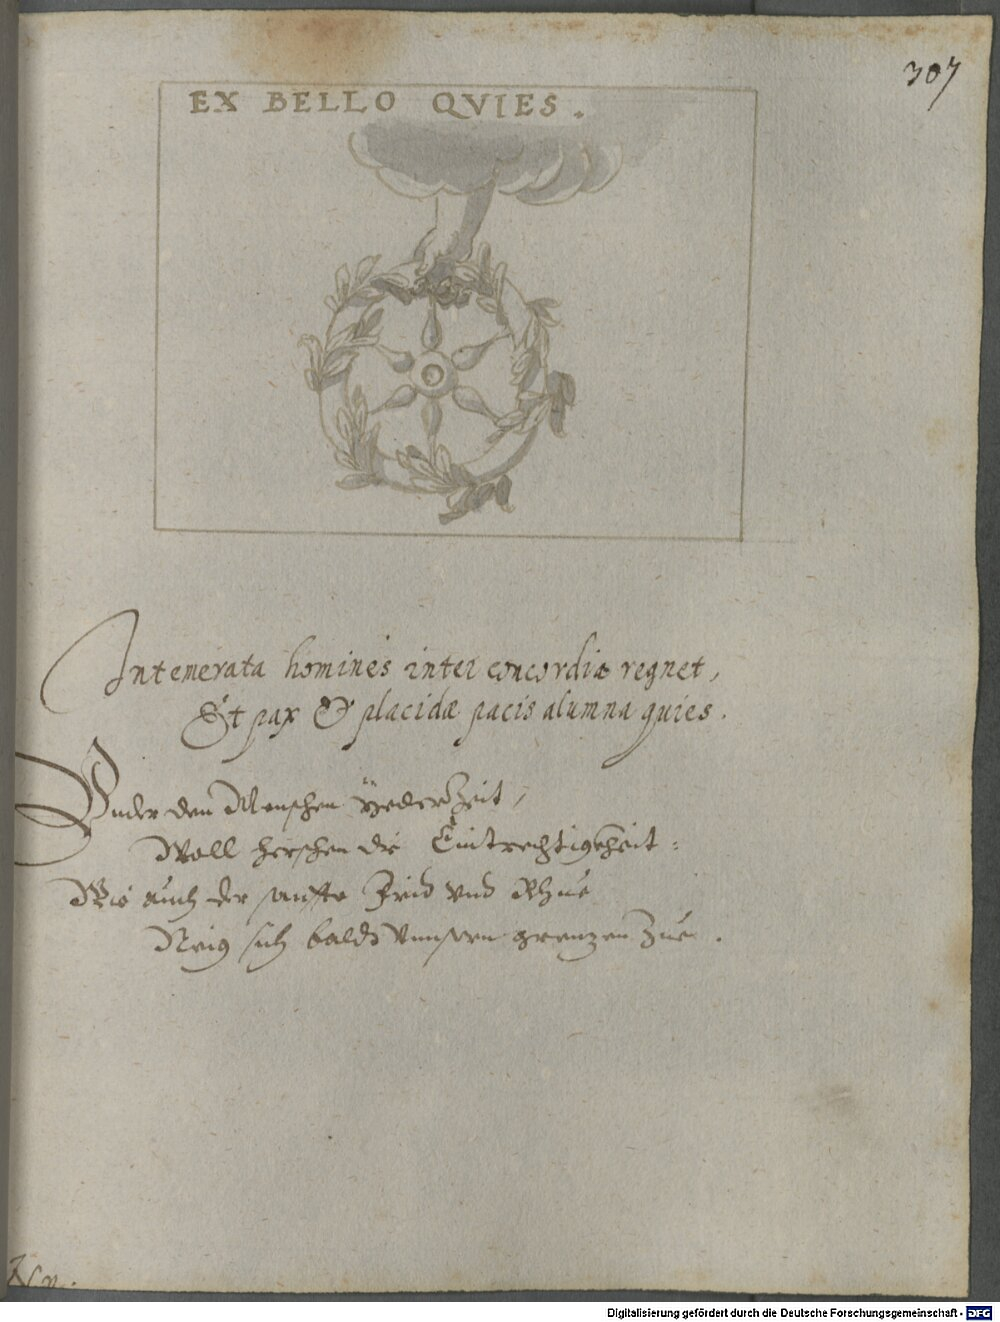 307
EX BELLO QVIES.
Intemerata homines inter concordia regnet,
Et pax & placidæ pacis alumna quies.
Vnder den Menschen yeder Zeit,
Woll herschen die Eintrechtigkheit:
Wie auch der sanffte Frid vnd Rhue
Neig sich baldt vnnsern grenzen Zue.
Digitalisierung gefördert durch die Deutsche Forschungsgemeinschaft - DFG